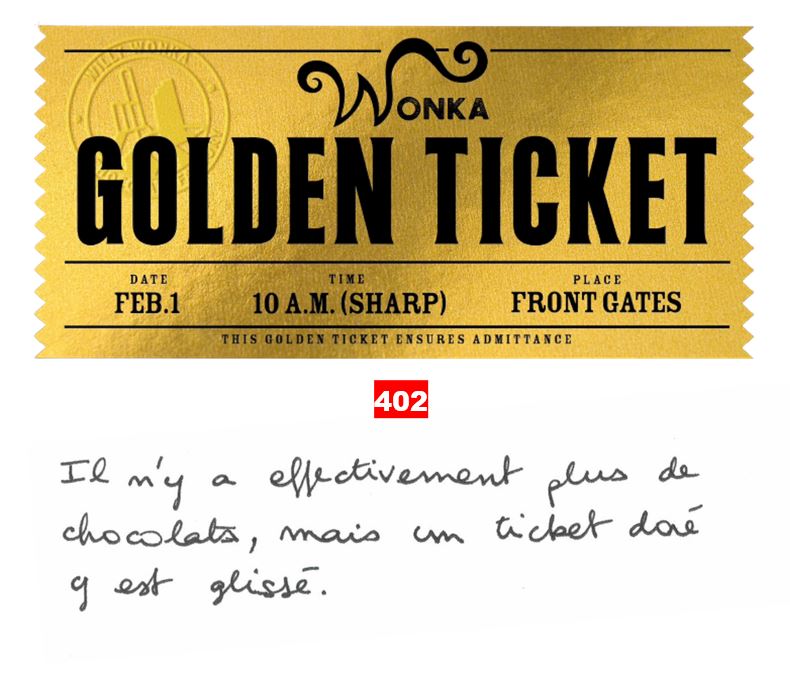 WILLY WONKA
WONKA
GOLDEN TICKET
DATE TIME PLACE
FEB.1 10 A.M. (SHARP) FRONT GATES
THIS GOLDEN TICKET ENSURES ADMITTANCE
402
Il n'y a effectivement plus de
chocolats, mais un ticket doré
y est glissé.